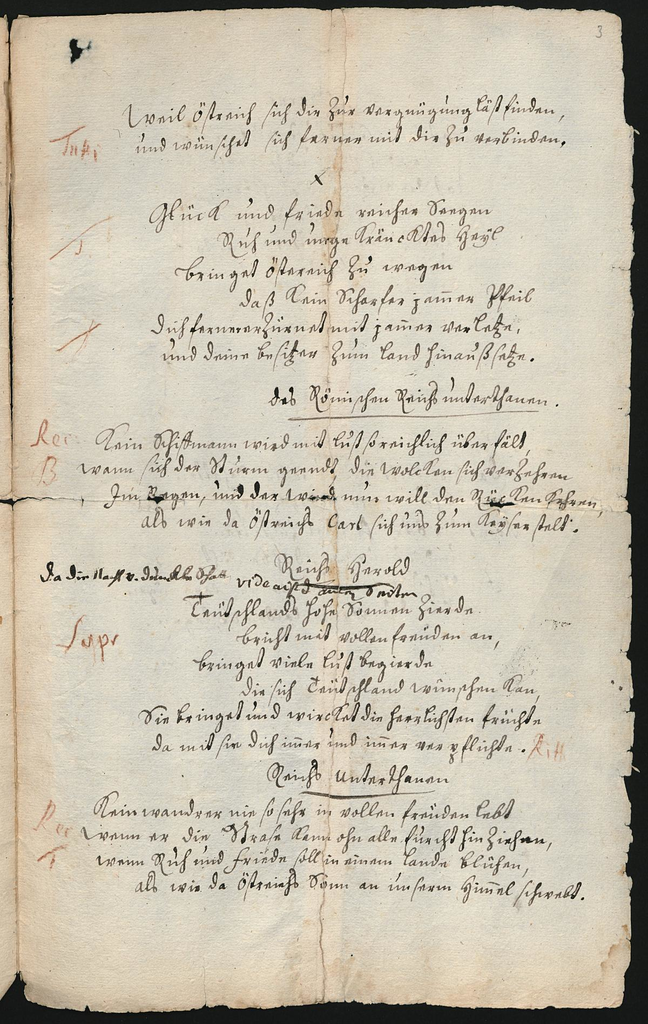 3
Weil Östreich sich dir zur vergnügung läst finden,
und wünschet sich ferner mit dir zu verbinden.
Tutti
x
Glück und friede reicher Seegen
Ruh und unge kräncktes Heyl
bringet Östereich zu wegen
daß kein Scharfer jammer Pfeil
dich ferner erzürnet mit jammer verletze,
und deine besitzer zum land hinauß setze.
des Römischen Reichs unterthanen.
Rec: Kein Schiffmann wird mit lust so reichlich über fält,
B wann sich der Sturm geendt, die wolcken sich verzehren
Im Regen, und der wind nun will den Rücken kehren,
als wie da Östreichs Carl sich uns zum Keyser stelt.
Reichs Herold
da die Nacht v. dunckle
vide auf d andern Seiten
Teütschlands hohe Sonnen Zierde
Sopr
bricht mit vollen freüden an,
bringet viele lust begierde
die sich Teütschland wünschen kan,
Sie bringet und wircket die herrlichsten früchte
da mit sie dich immer und immer verpflichte.
Reichs Unterthanen
Rec Kein wandrer nie so sehr in vollen freüden lebt
T wenn er die Strase kann ohn alle furcht hin ziehen,
wenn Ruh und friede soll in einem lande blühen,
als wie da Östreichs Sonn an unserm Himmel schwebt.